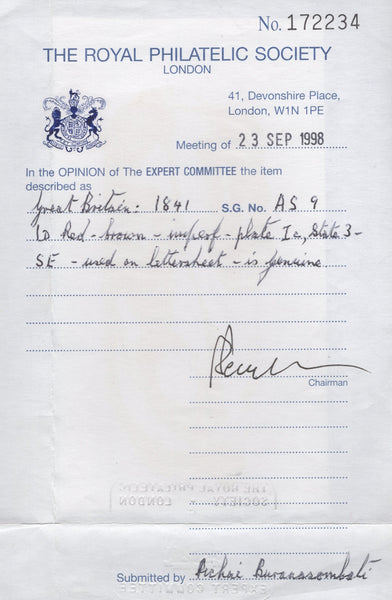 No. 172234
THE ROYAL PHILATELIC SOCIETY
LONDON
41, Devonshire Place,
London, W1N 1PE
Meeting of 23 SEP 1998
In the OPINION of The EXPERT COMMITTEE the item
described as
Great Britain: 1841 S.G. No. AS 9
1D Red-brown - imperf - plate 1c, State 3 -
SE - used on lettersheet - is genuine
Chairman
THE ROYAL PHILATELIC
SOCIETY LONDON
Submitted by Pichai Buranasombati
EXPERT COMMITTEE